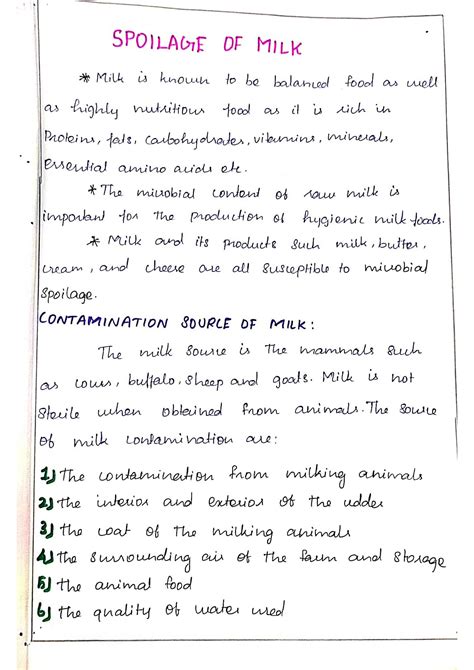 SPOILAGE OF MILK
* Milk is known to be balanced food as well
as highly nutritious food as it is rich in
Proteins, fats, Carbohydrates, vitamins, minerals,
Essential amino acids etc.
* The microbial content of raw milk is
important for the production of hygienic milk foods.
* Milk and its products such milk, butter,
cream, and cheese are all susceptible to microbial
spoilage.
CONTAMINATION SOURCE OF MILK:
The milk source is the mammals such
as cows, buffalo, sheep and goats. Milk is not
sterile when obtained from animals. The source
of milk contamination are:
1) The contamination from milking animals
2) the interior and exterior of the udder
3) the coat of the milking animals
4) the surrounding air of the farm and storage
5) the animal food
6) the quality of water used